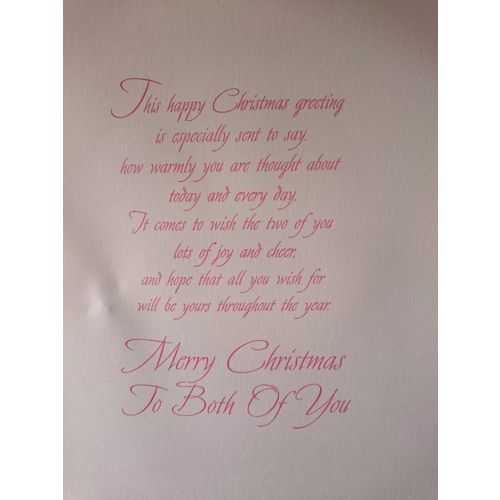 This happy Christmas greeting
is especially sent to say,
how warmly you are thought about
today and every day,
It comes to wish the two of you
lots of joy and cheer,
and hope that all you wish for
will be yours throughout the year.
Merry Christmas
To Both Of You